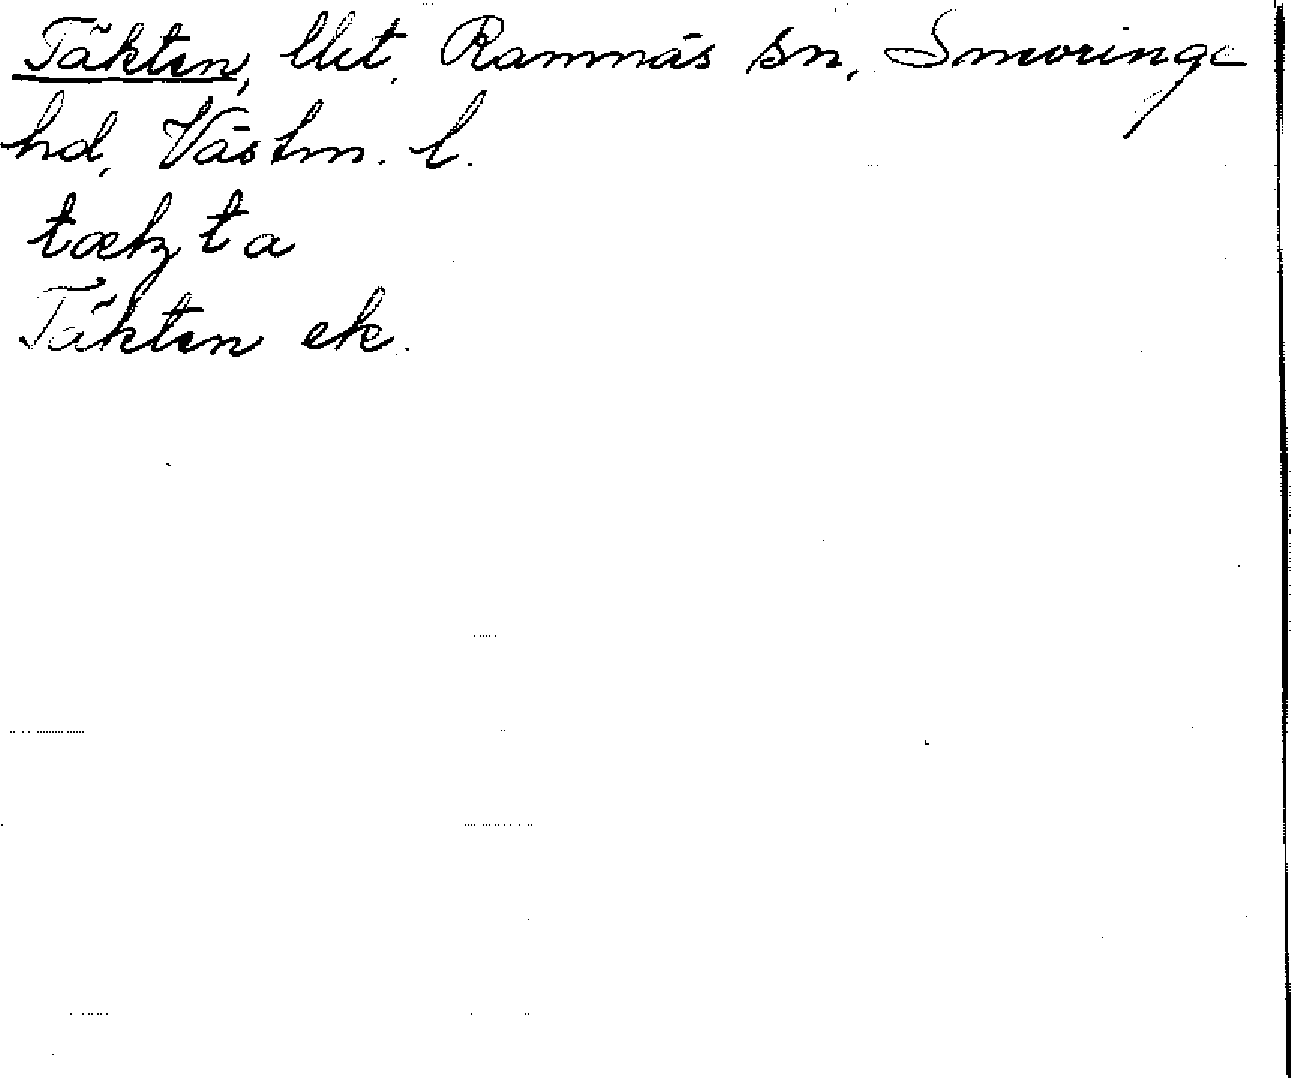 Täkten, llet. Ramnäs sn, Snevringe
hd, Västm. l.
tækta
Täkten ek.